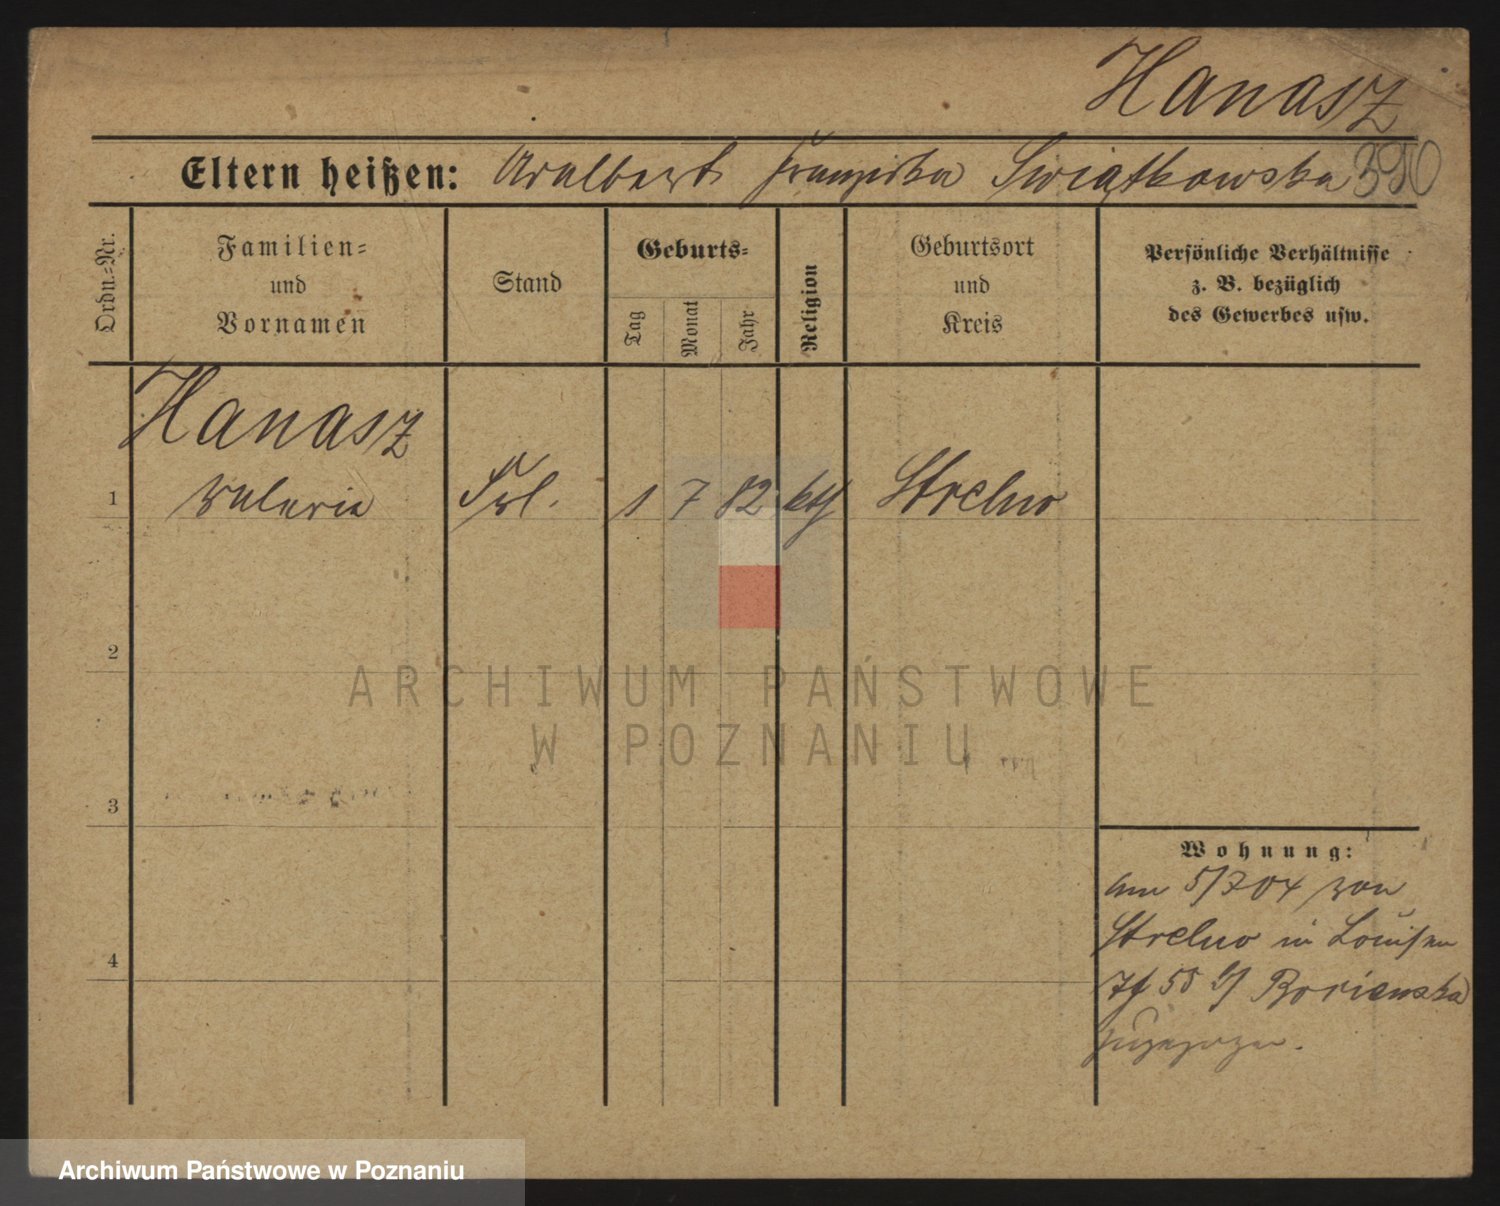 Hanasz
Eltern heißen: Adalbert Franziska Swiątkowska 390
Ordn.=Nr.
Familien=
und
Vornamen
Stand
Geburts=
Tag
Monat
Jahr
Religion
Geburtsort
und
Kreis
Persönliche Verhältnisse
z. B. bezüglich
des Gewerbes usw.
Hanasz
1 Valeria Frl. 1 7 82 kth Strelno
2
3
4
Wohnung:
am 5/7 04 von
Strelno in Louisen
58 b/ Borienska
zugezogen.
ARCHIWUM PAŃSTWOWE
W POZNANIU
Archiwum Państwowe w Poznaniu